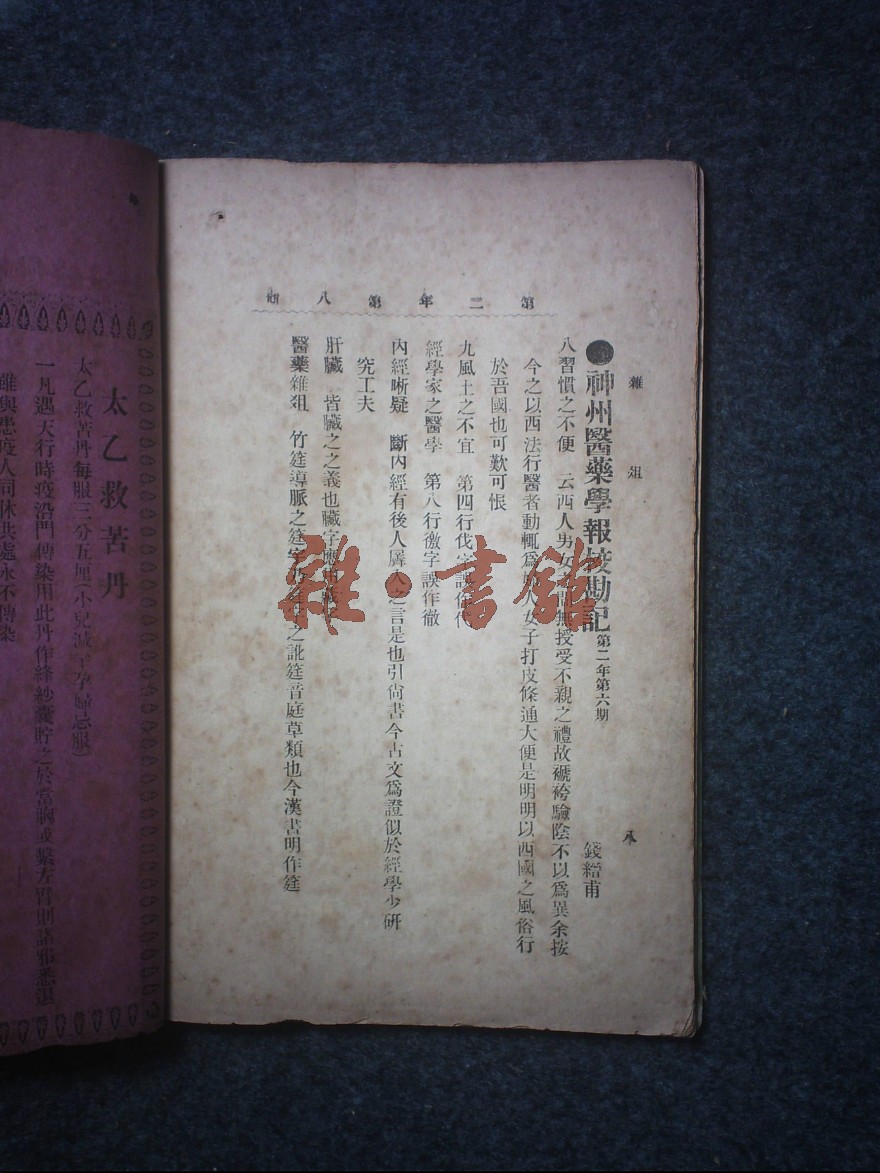 雜俎
八
神州醫藥學報校勘記 第二年第六期
錢縉甫
八習慣之不便 云西人男女 授受不親之禮故褫袴驗陰不以爲異余按
今之以西法行醫者動輒爲 人女子打皮條通大便是明明以西國之風俗行
於吾國也可歎可恨
九風土之不宜 第四行伐字誤作代
經學家之醫學 第八行徼字誤作徹
內經晰疑 斷內經有後人羼入之言是也引尙書今古文爲證似於經學少研
究工夫
肝臟 皆臟之之義也臟字應
醫藥雜俎 竹筳導脈之筳字 之訛筳音庭草類也今漢書明作筳
第二年第八冊
雜·書館
太乙救苦丹
太乙救苦丹每服三分五厘(小兒減半孕婦忌服)
一凡遇天行時疫沿門傳染用此丹作絳紗囊貯之於當胸或繫左臂則諸邪悉退
雖與患疫人同休共處永不傳染